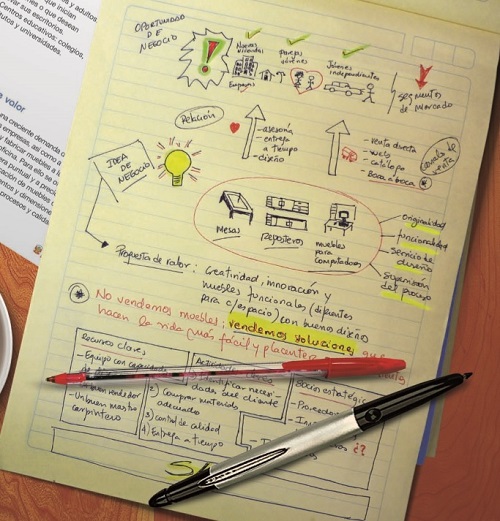 que inician
o que desean
rar sus escritorios.
Centros educativos: colegios,
utos y universidades.
valor
una creciente demanda
OPORTUNIDAD
DE
NEGOCIO
Nuevas
viviendas
parejas
jóvenes
Jóvenes
independientes
Empresas
segmentos
de mercado
Relación
- asesoría
- entrega
a tiempo
- diseño
- venta directa
- web
- catálogo
- Boca a boca
canales de
venta
IDEA
DE
NEGOCIO
MESAS
REPOSTEROS
muebles
para
computadoras
originalidad
funcionalidad
servicio de
diseño
supervisión
del proceso
Propuesta de valor: Creatividad, innovación y
muebles funcionales (diferentes
para c/espacio) con buenos diseños
No vendemos muebles; vendemos soluciones que
hacen la vida más fácil y placentera
Recursos claves
- Equipo con capacidades
- Un buen vendedor
- Un buen maestro
carpintero
Identificar necesi-
dades del cliente
2) Comprar materiales
adecuados
3) control de calidad
4) Entrega a tiempo
Socios estratégicos
- Proveedores
¿?
$